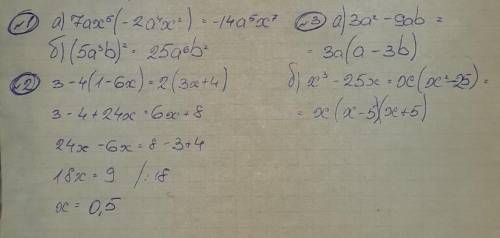 №1 а) 7ax⁵(-2a⁴x²) = -14a⁵x⁷
б) (5a³b)² = 25a⁶b²
№2 3-4(1-6x)=2(3x+4)
3-4+24x=6x+8
24x-6x=8-3+4
18x=9 /:18
x=0,5
№3 а) 3a²-9ab=
=3a(a-3b)
б) x³-25x=x(x²-25)=
=x(x-5)(x+5)